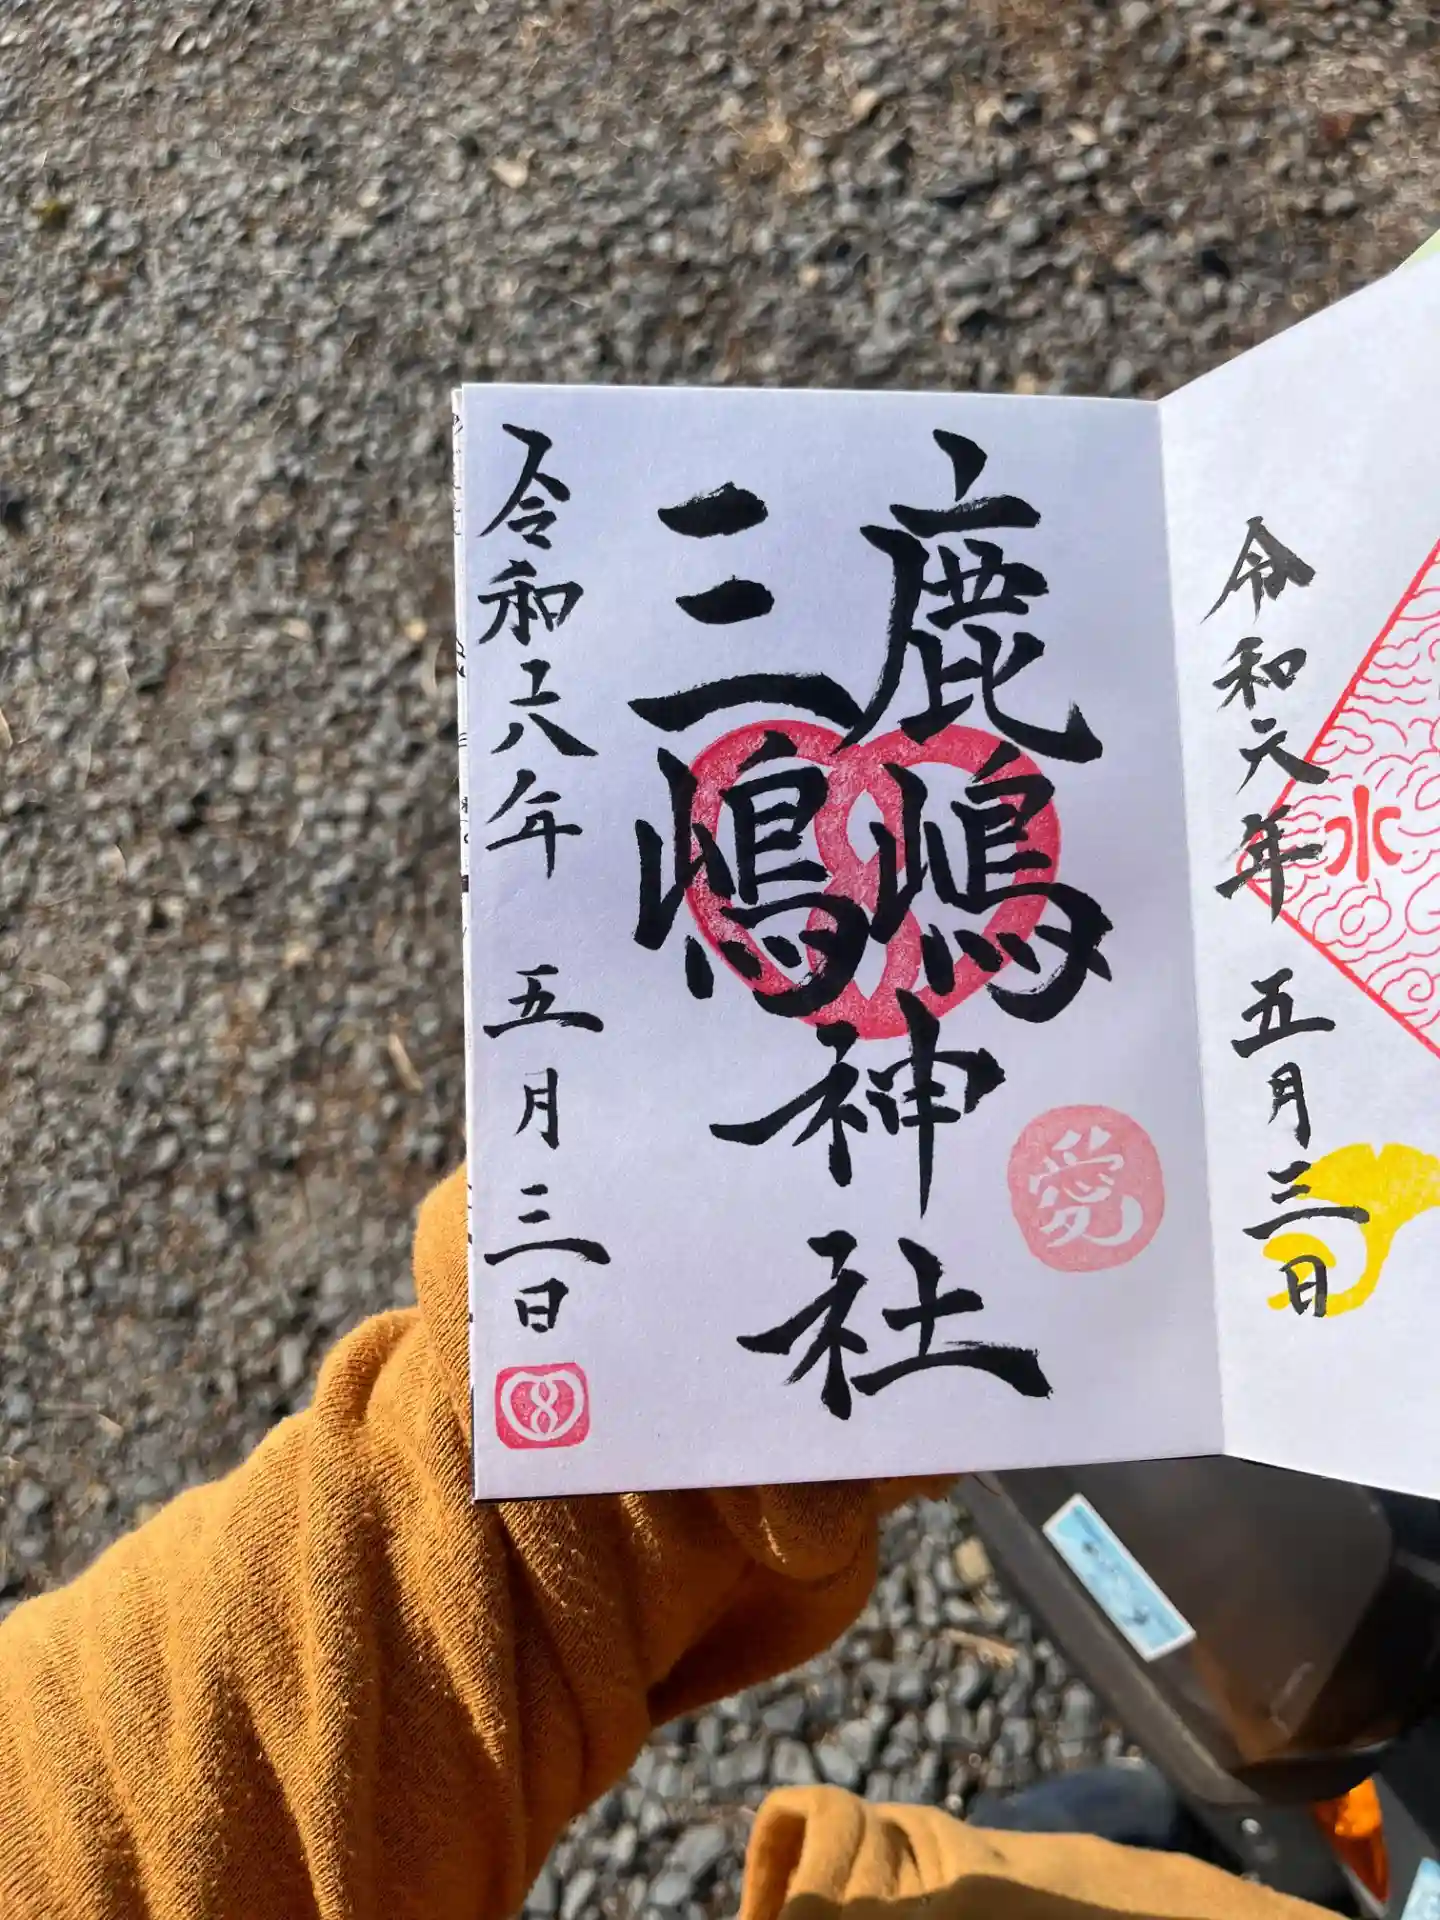 令和六年 五月三日
水
鹿嶋
三嶋
神社
愛
令和六年 五月三日